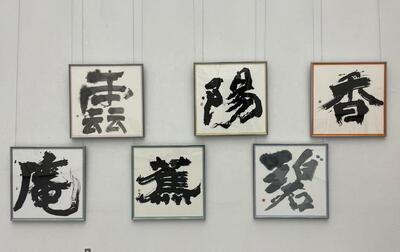 陽 香
庵 蕉 碧